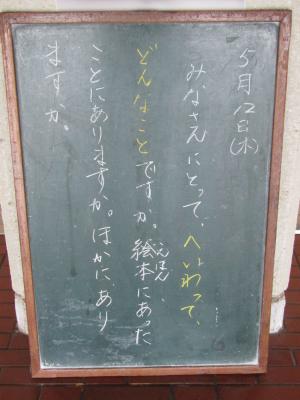 5月12日(木)
みなさんにとって、へいわって、
どんなことですか。絵本にあった
えほん
ことにありますか。ほかに、あり
ますか。